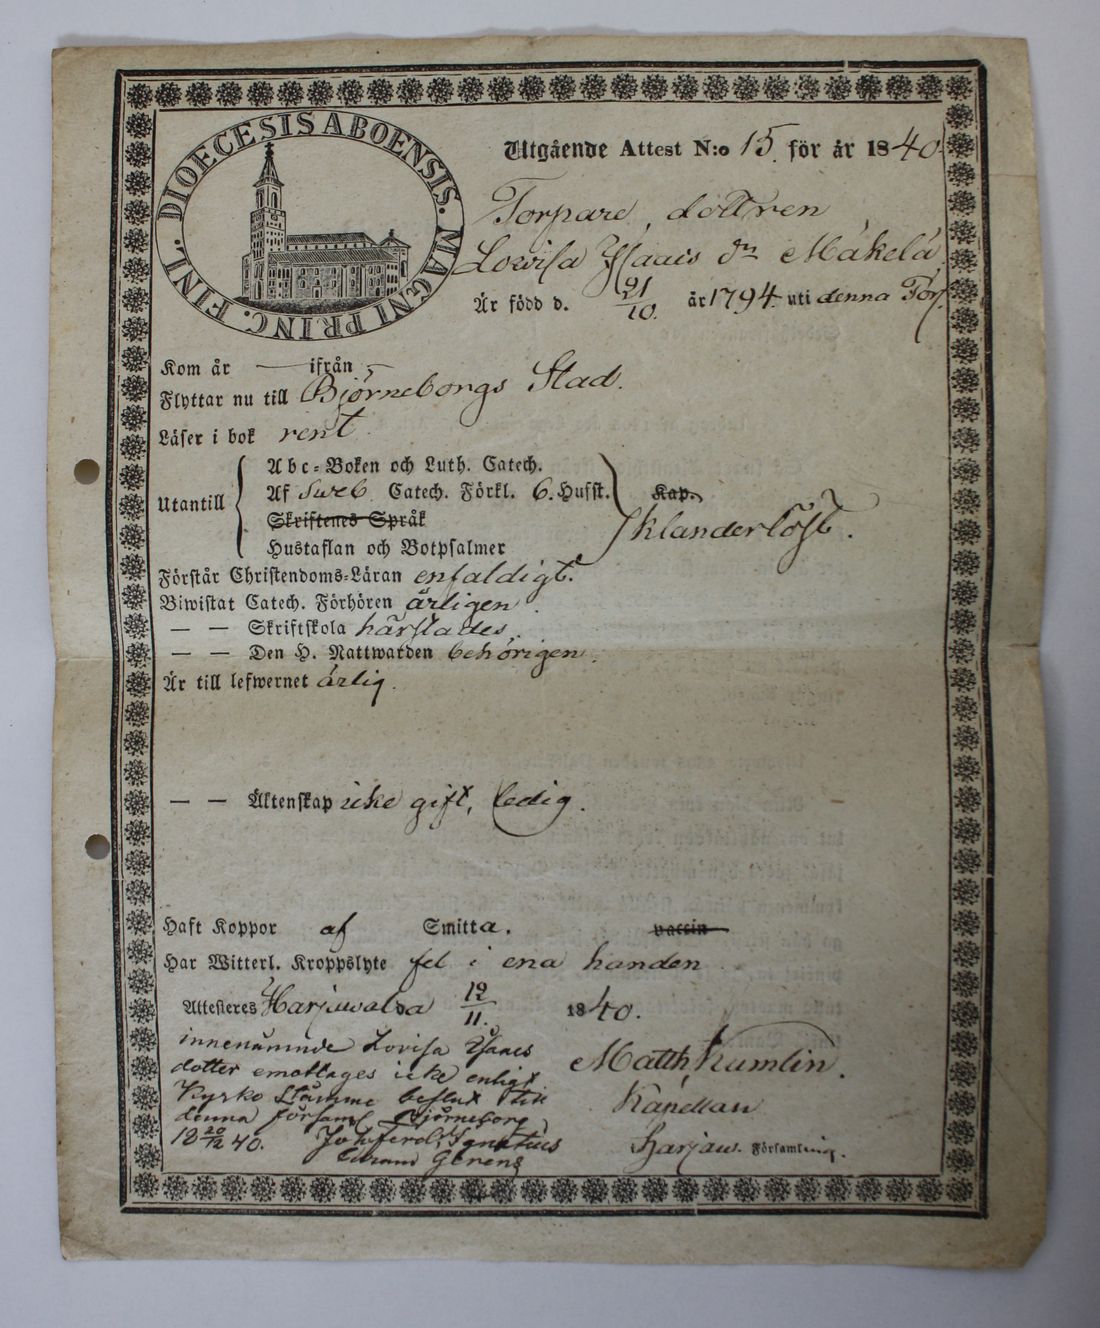 DIOECESIS ABOENSIS. MAGNI PRINC. FINL.
Utgående Attest N:o 15. för år 1840.
Torpare, dottren
Lowisa Isaacs dr Mäkelä
Är född d. 21/10. år 1794 uti denna Förs.
Kom år — ifrån,
Flyttar nu till Björneborgs Stad.
Läser i bok rent
Utantill
Abc-Boken och Luth. Catech.
Af Sweb. Catech. Förkl. 6. Hufst. Kap.
Skriftenes Språk
Hustaflan och Botpsalmer
Sklanderlöst.
Förstår Christendoms-Läran enfaldigt.
Biwistat Catech. Förhören årligen.
— — Skriftskola härstädes.
— — Den H. Nattwarden behörigen.
Är till lefwernet ärlig.
— — Äktenskap icke gift, ledig.
Haft Koppor af Smitta. vaccin
Har Witterl. Kroppslyte fel i ena handen
Attesteres Harjawalda 12/11. 1840.
Matth Kumlin.
Harjaw. Församling.
innenämnde Lovisa Isaacs
dotter emottages icke enligt
Kyrko Stämme beslut
denna församl Björneborg
18 20/12 40. Joh ferd. Ignatius